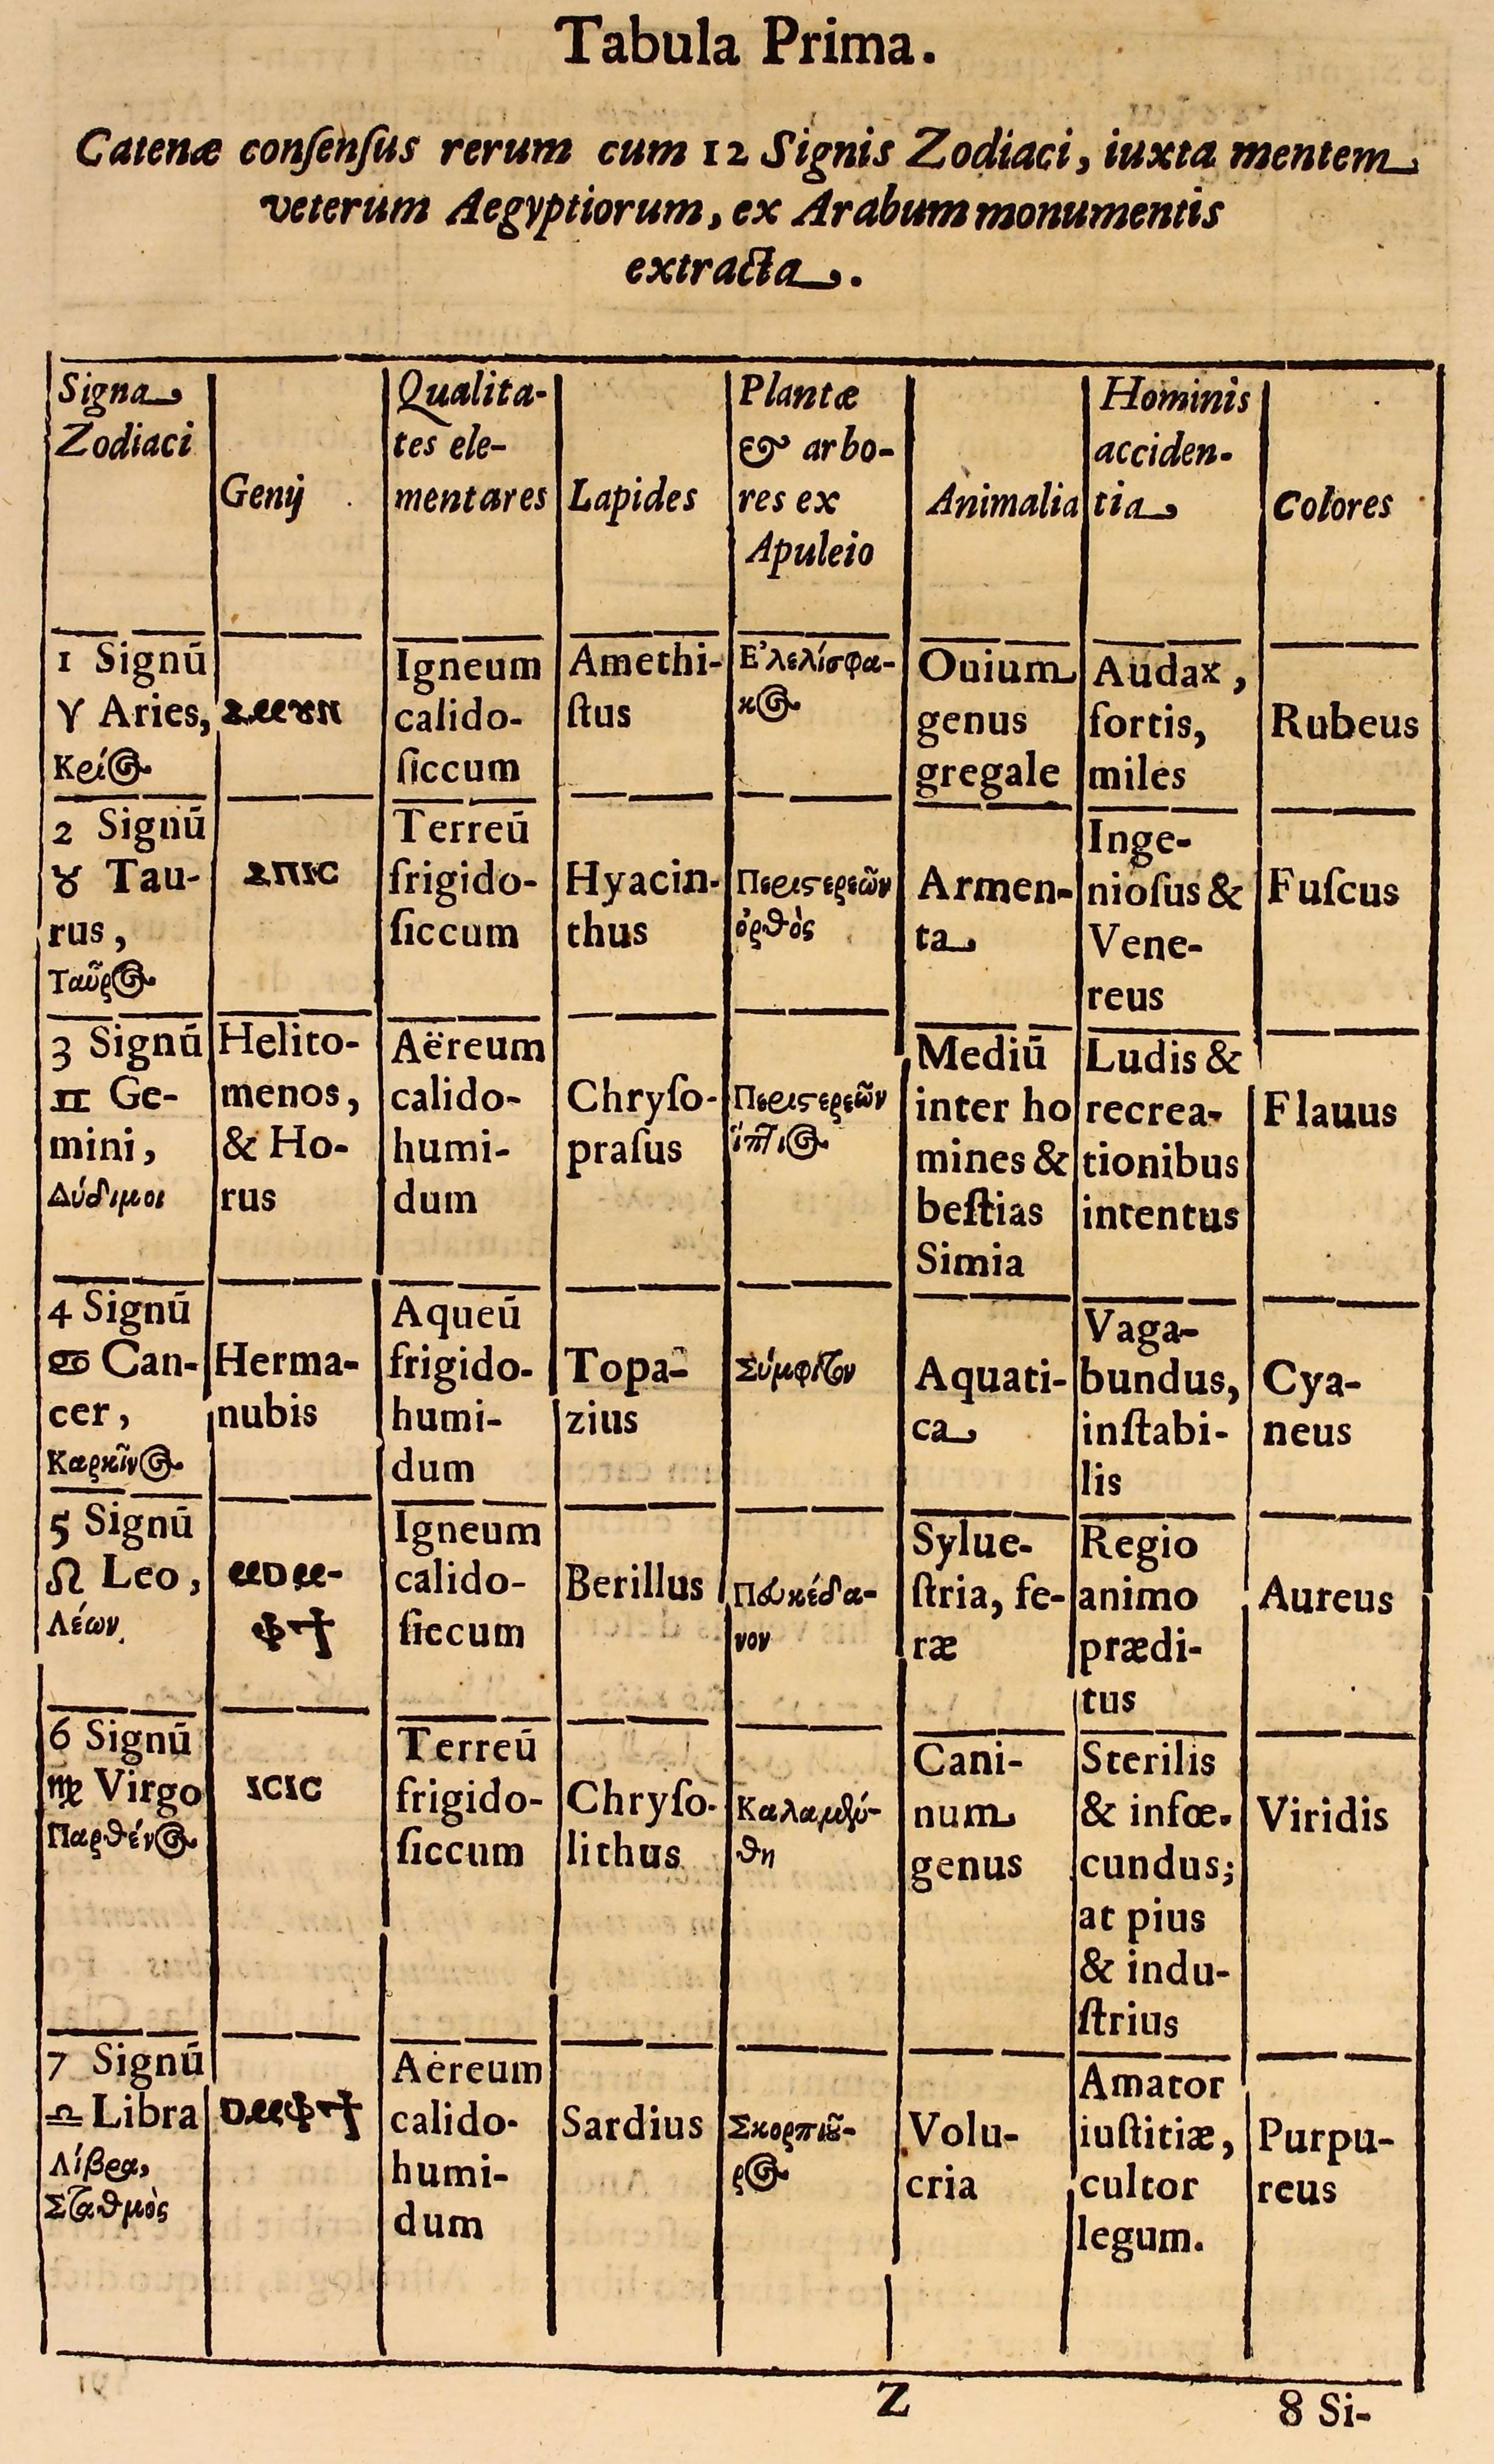 Tabula Prima.
Catenæ conſenſus rerum cum 12 Signis Zodiaci, iuxta mentem
veterum Aegyptiorum, ex Arabum monumentis
extracta.
Signa
Zodiaci
Genij
Qualita-
tes ele-
mentares
Lapides
Plantæ
& arbo-
res ex
Apuleio
Animalia
Hominis
acciden-
tia
Colores
1 Signū
♈ Aries,
Κείος
ⲁⲙȣⲛ
Igneum
calido-
ſiccum
Amethi-
ſtus
Ε᾽λελίσφα-
κος
Ouium
genus
gregale
Audax,
fortis,
miles
Rubeus
2 Signū
♉ Tau-
rus,
Ταῦρος
ⲁⲡⲓⲥ
Terreū
frigido-
ſiccum
Hyacin-
thus
Περιστερεῶν
ὀρθὸς
Armen-
ta
Inge-
nioſus &
Vene-
reus
Fuſcus
3 Signū
♊ Ge-
mini,
Δύδιμοι
Helito-
menos,
& Ho-
rus
Aëreum
calido-
humi-
dum
Chryſo-
praſus
Περιστερεῶν
ὕπτιος
Mediū
inter ho
mines &
beſtias
Simia
Ludis &
recrea-
tionibus
intentus
Flauus
4 Signū
♋ Can-
cer,
Καρκῖνος
Herma-
nubis
Aqueū
frigido-
humi-
dum
Topa-
zius
Σύμφιτον
Aquati-
ca
Vaga-
bundus,
inſtabi-
lis
Cya-
neus
5 Signū
♌ Leo,
Λέων
ⲙⲟⲙ-
ⲫϯ
Igneum
calido-
ſiccum
Berillus
Πευκέδα-
νον
Sylue-
ſtria, fe-
ræ
Regio
animo
prædi-
tus
Aureus
6 Signū
♍ Virgo
Παρθένος
ⲓⲥⲓⲥ
Terreū
frigido-
ſiccum
Chryſo-
lithus
Καλαμύν-
θη
Cani-
num
genus
Sterilis
& infœ-
cundus;
at pius
& indu-
ſtrius
Viridis
7 Signū
♎ Libra
Λίβρα,
Σταθμὸς
ⲟⲙⲫϯ
Aereum
calido-
humi-
dum
Sardius
Σκορπιοῦ-
ρος
Volu-
cria
Amator
iuſtitiæ,
cultor
legum.
Purpu-
reus
Z
8 Si-